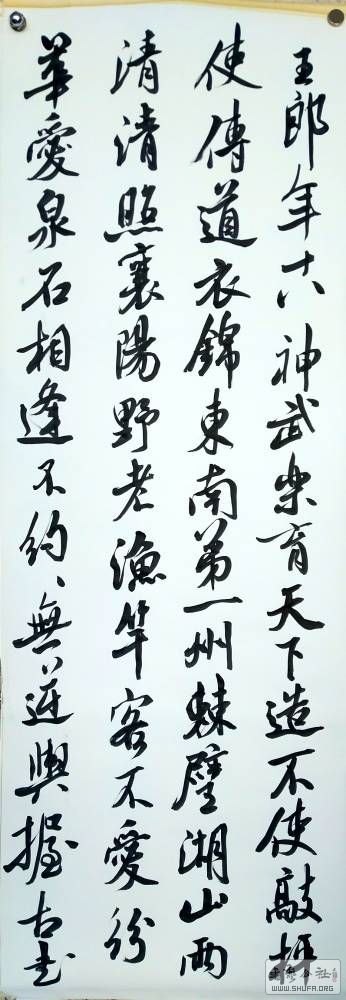 王郎年十八神武樂育天下造不使敲枰
使傳道衣錦東南第一州棘璧湖山兩
清清照襄陽野老漁竿客不愛紛
華愛泉石相逢不約〻無逆輿握古書
WWW.SHUFA.ORG